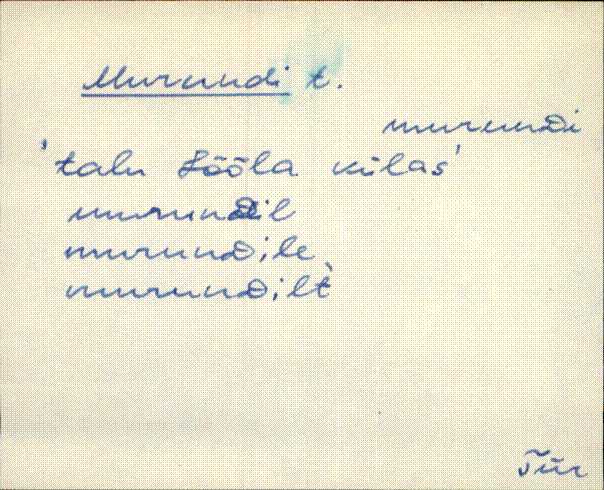 Murundi t.
murunDi
'talu Lõõla külas'
murunDil
murunDile
murunDilt
Tür